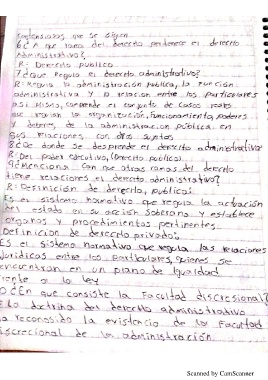 que se siguen
6¿A que rama del derecho pertenece el derecho
administrativo?
R: Derecho publico
7¿que Regula el derecho administrativo?
R: Regula la administración publica, la función
administrativa y a relacion entre los particulares
asi mismo, comprende el conjunto de reales
que regulan la organización, funcionamiento, poderes
y deberes, de la administracion publica, en
sus relaciones con otros sujetos
8¿De donde se desprende el derecho administrativo
R: Del poder ejecutivo, (derecho publico)
9¿Menciona con que otras ramas del derecho
tiene relaciones el derecho administrativo?
R: Definición de derecho, publico:
Es el sistema normativo que regula la actuación
del estado en su acción soberana y establece
organos y procedimientos pertinentes
Definición de derecho privado:
Es el sistema normativo que regula las relaciones
Juridicas entre los particulares, quienes se
encuentran en un plano de igualdad
frente a la ley
¿En que consiste la Facultad discresional?
la doctrina del derecho administrativo
a reconosido la existencia de la Facultad
discrecional de la administración.
Scanned by CamScanner